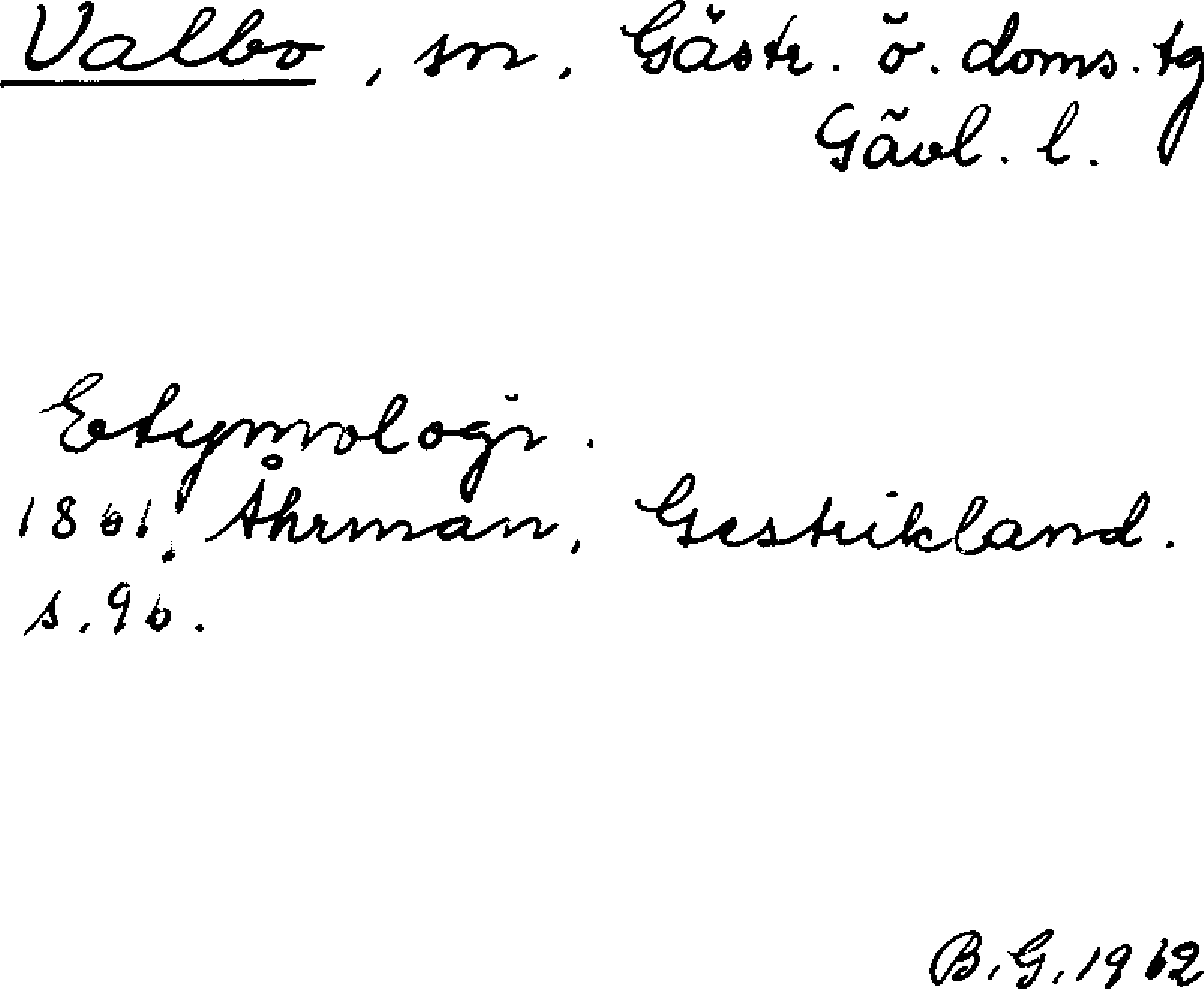 Valbo, sn, Gästr. ö. doms. tg
Gävl. l.
Etymologi.
1861. Åhrman, Gestrikland.
s. 96.
B.G. 1962